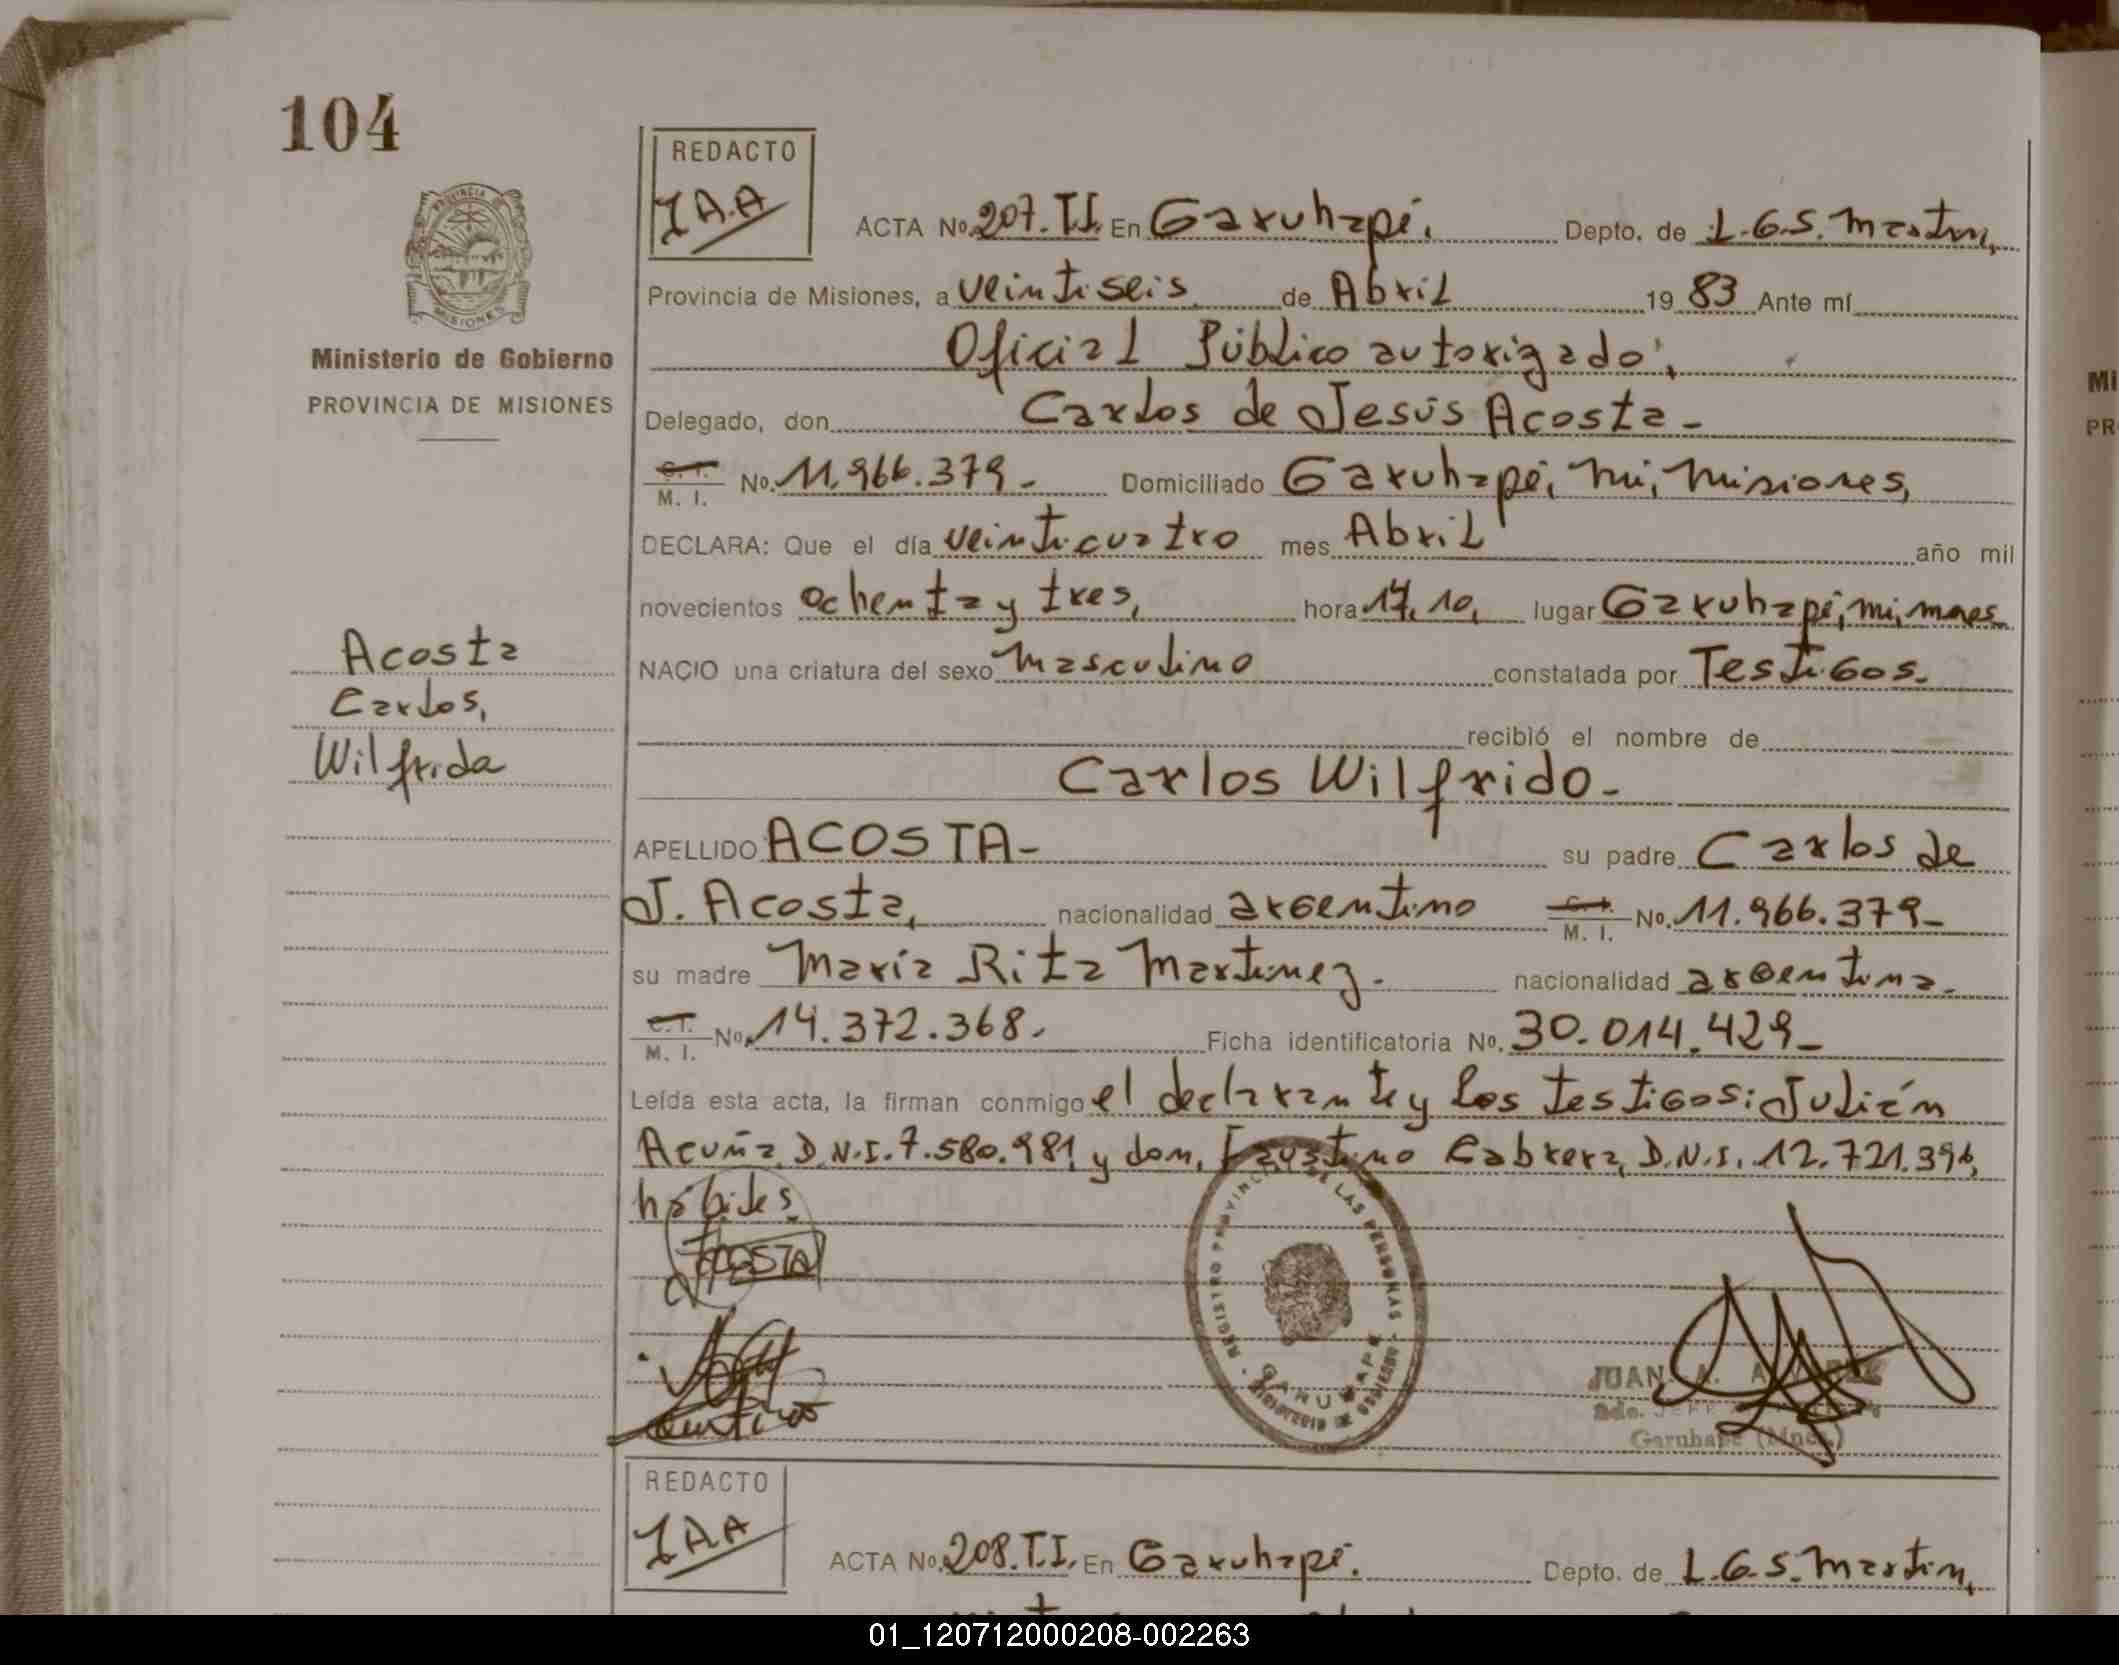 104
PROVINCIA
MISIONES
Ministerio de Gobierno
PROVINCIA DE MISIONES
Acosta
Carlos,
Wilfrida
REDACTO
ACTA No. 207. T.I. En Garuhapé, Depto. de L.G.S. Martin,
Provincia de Misiones, a veintiseis de Abril 19 83 Ante mí
Oficial Público autorizado,
Delegado, don Carlos de Jesús Acosta -
C. I. M. I. No. 11.966.379 - Domiciliado Garuhapé, mi, misiones,
DECLARA: Que el día veinticuatro mes Abril año mil
novecientos ochenta y tres, hora 17,10, lugar Garuhapé, mi, mnes.
NACIO una criatura del sexo masculino constatada por Testigos.
recibió el nombre de
Carlos Wilfrido -
APELLIDO ACOSTA - su padre Carlos de
J. Acosta, nacionalidad argentino C. I. M. I. No. 11.966.379 -
su madre María Rita Martinez. nacionalidad argentina.
C. I. M. I. No. 14.372.368. Ficha identificatoria No. 30.014.429 -
Leída esta acta, la firman conmigo el declarante y los testigos: Julián
Acuña D.N.I. 7.580.981, y don, Faustino Cabrera, D.N.I. 12.721.396,
hábiles,
ACOSTA
REGISTRO PROVINCIAL DE LAS PERSONAS
GARUHAPE
MINISTERIO DE GOBIERNO
JUAN A.
Garuhapé (Mnes.)
REDACTO
ACTA No. 208. T.I. En Garuhapé. Depto. de L.G.S. Martin,
Mi
PR
01_120712000208-002263